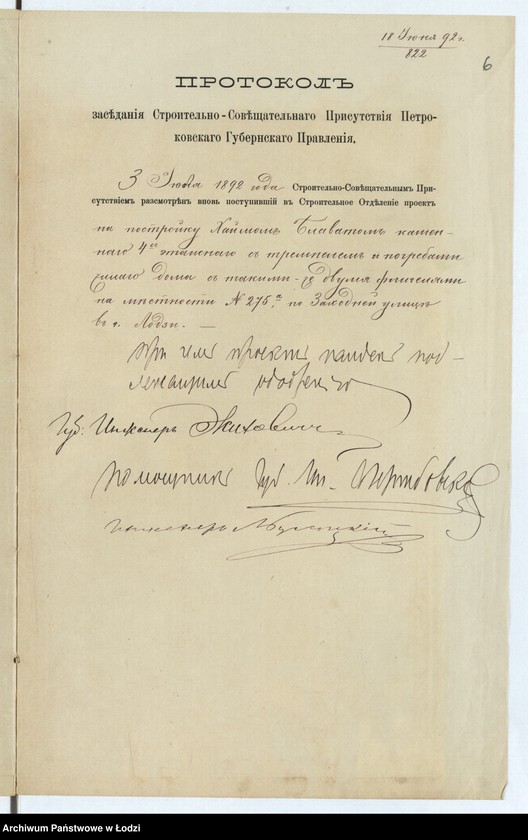 18 Іюня 92 г.
822
6
ПРОТОКОЛЪ
засѣданія Строительно-Совѣщательнаго Присутствія Петро-
ковскаго Губернскаго Правленія.
3 Іюля 1892 года Строительно-Совѣщательнымъ При-
сутствіемъ разсмотрѣнъ вновь поступившій въ Строительное Отдѣленіе проектъ
на постройку Хаймомъ Блаватомъ камен-
наго 4хъ этажнаго съ и погребами
жилаго дома съ такими-же двумя флигелями
на мѣстности № 275.а по Заходней улицѣ
въ г. Лодзи. —
При чемъ проектъ найденъ под-
лежащимъ одобренію
Губ. Инженеръ
Помощникъ Губ. Ин.
Инженеръ
Archiwum Państwowe w Łodzi